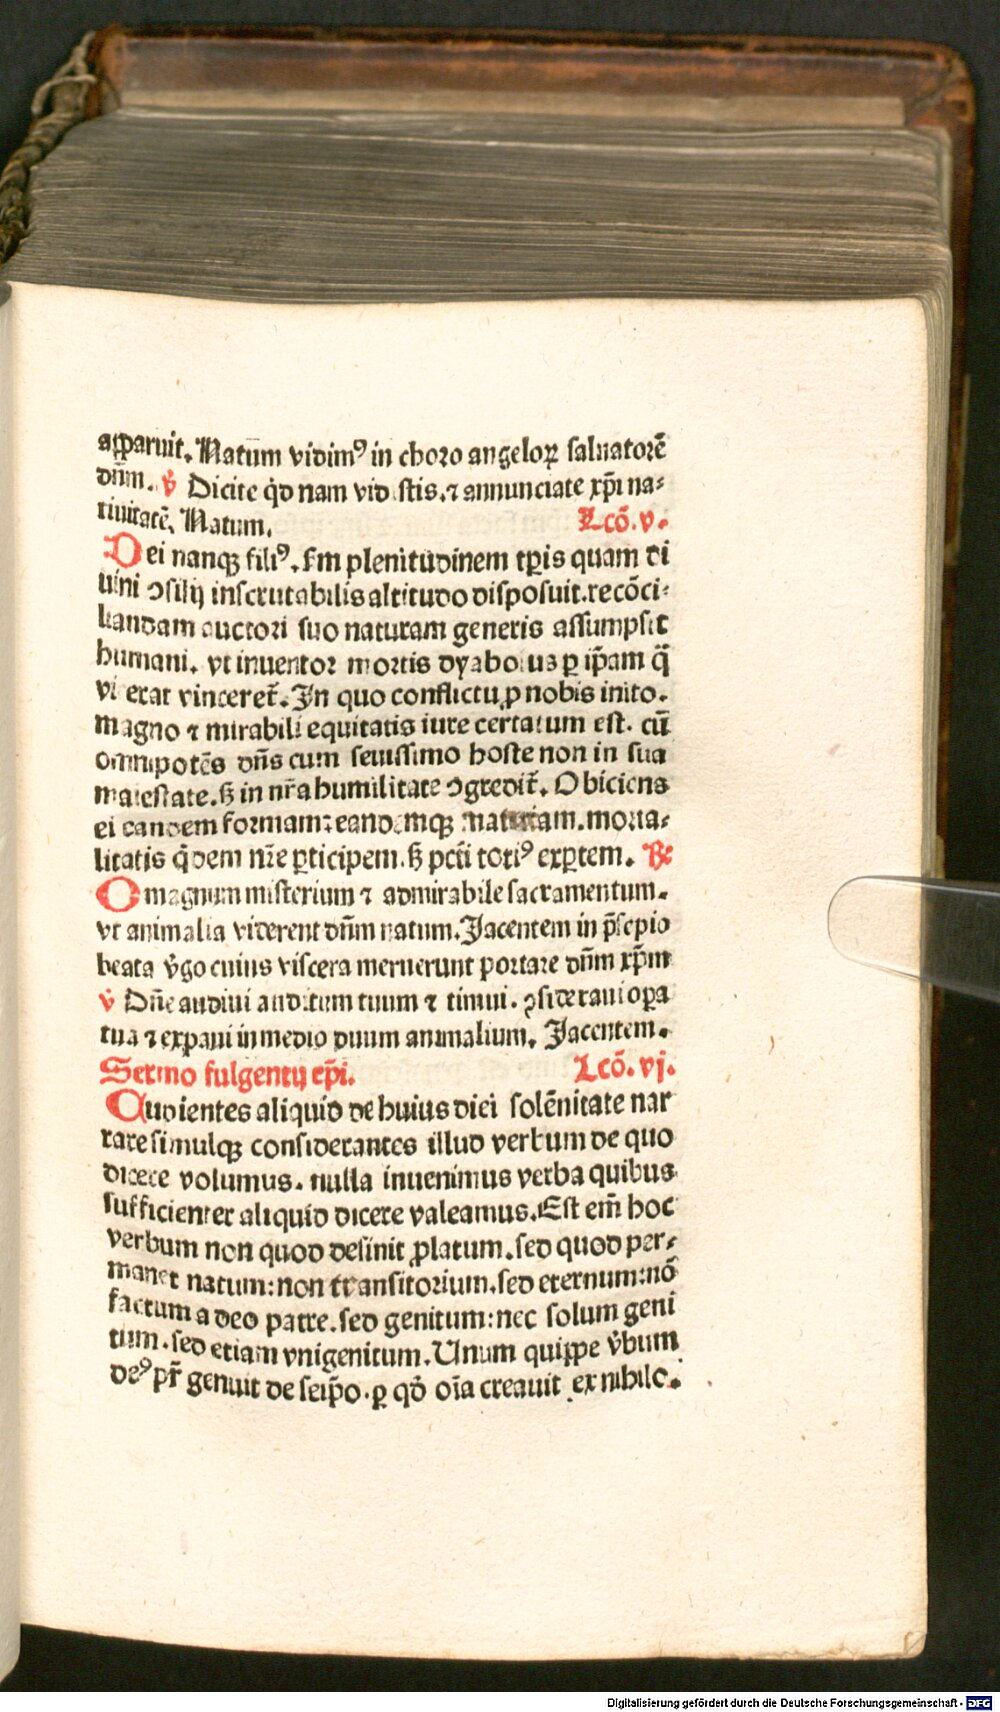 apparuit. Natum̄ vidimꝰ in choro angeloꝝ saluatorē
dn̄m. v̇ Dicite qd̓ nam vid stis.⁊ annunciate xp̄i na⸗
tiuitatē. Natum. Lcō.v.
Dei nanqꝫ filiꝰ. ẜm plenitudinem tp̄is quam di
uini ꝯsilij inscrutabilis altitudo disposuit.recōci⸗
liandam auctori suo naturam generis assumpsit
humani. vt inuentor mortis dyabolus ꝑ ip̄am q̄
vi erat vinceret̄. In quo conflictu ꝓ nobis inito.
magno ⁊ mirabili equitatis iure certatum est. cū
omnipotēs dn̄s cum seuissimo hoste non in sua
maiestate.ꜩ in nr̄a humilitate ꝯgredit̄. Obiciens
ei eandem formam:eandemqꝫ naturam.morta⸗
litatis q̇dem nr̄e ꝑticipem.ꜩ pctī totiꝰ exꝑtem. ℞
O magnum misterium ⁊ admirabile sacramentum.
vt animalia viderent dn̄m natum. Jacentem in p̄sepio
beata v̓go cuius viscera meruerunt portare dn̄m xp̄m
v̇ Dn̄e audiui auditum tuum ⁊ timui. ꝯsideraui oꝑa
tua ⁊ expaui in medio duum animalium. Jacentem.
Sermo fulgentij ep̄i. Lcō. vj.
Audientes aliquid de huius diei solēnitate nar
rare simulqꝫ considerantes illud verbum de quo
dicere volumus. nulla inuenimus verba quibus
sufficienter aliquid dicere valeamus. Est em̄ hoc
verbum non quod desinit ꝓlatum.sed quod per⸗
manet natum:non transitorium.sed eternum:nō
factum a deo patre.sed genitum:nec solum geni
tum.sed etiam vnigenitum. Unum quippe v̓bum
deꝰ pr̄ genuit de seip̄o.ꝑ qd̓ oīa creauit ex nihilo.
Digitalisierung gefördert durch die Deutsche Forschungsgemeinschaft - DFG